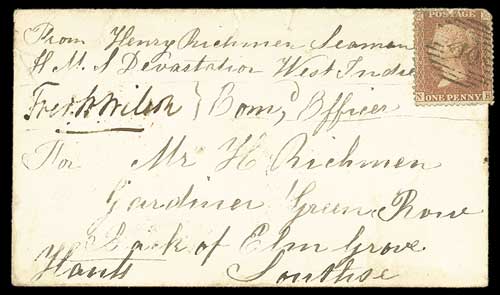 From Henry Richmen Seaman
H M S Devastation West Indies
Fredk Wilson } Comd Officer
For Mr H Richmen
Gardiner Green Row
Back of Elm Grove
Hants Southse
POSTAGE
ONE PENNY